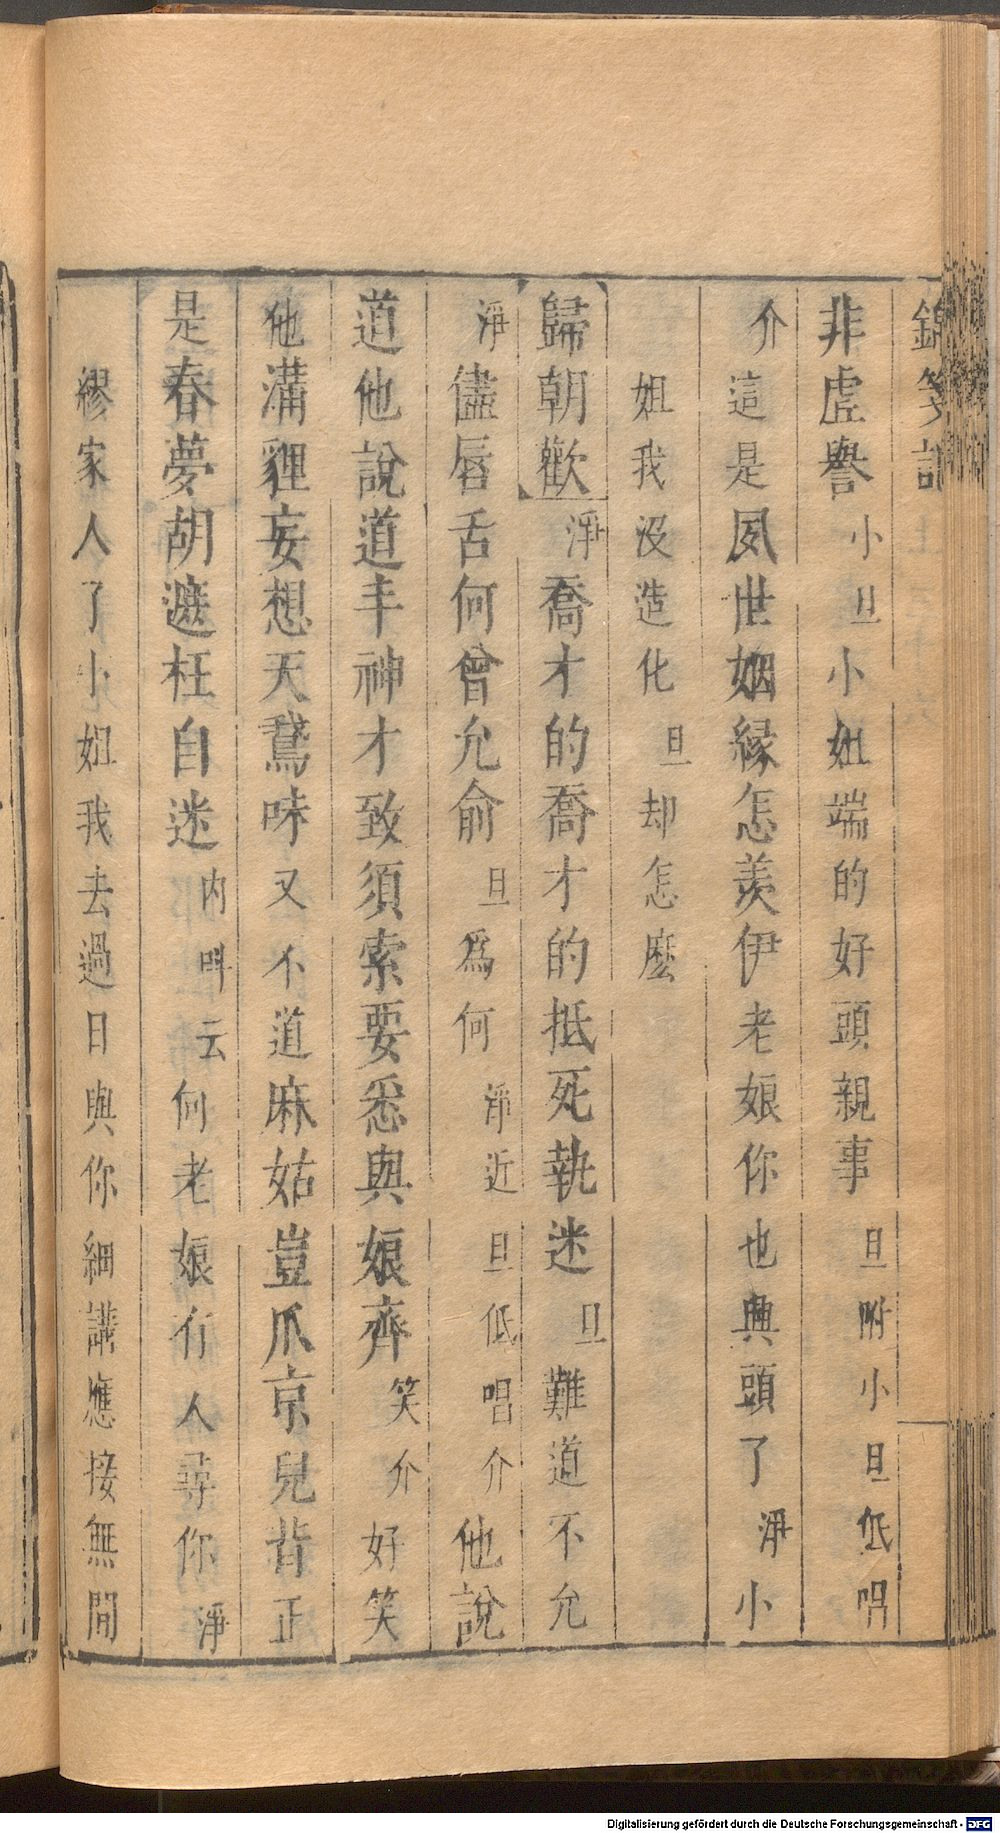 錦箋記
非虛譽小旦小姐端的好頭親事旦附小旦低唱
介這是夙世姻緣怎羨伊老娘你也興頭了淨小
姐我沒造化旦却怎麽
歸朝歡淨喬才的喬才的抵死執迷旦難道不允
淨儘唇舌何曾允俞旦為何淨近旦低唱介他說
道他說道丰神才致須索要悉與娘齊笑介好笑
他溝貍妄想天鵞味又不道麻姑豈爪京兒背正
是春夢胡遮枉自迷內呌云何老娘有人尋你淨
繆家人了小姐我去過日與你細講應接無間
Digitalisierung gefördert durch die Deutsche Forschungsgemeinschaft - DFG